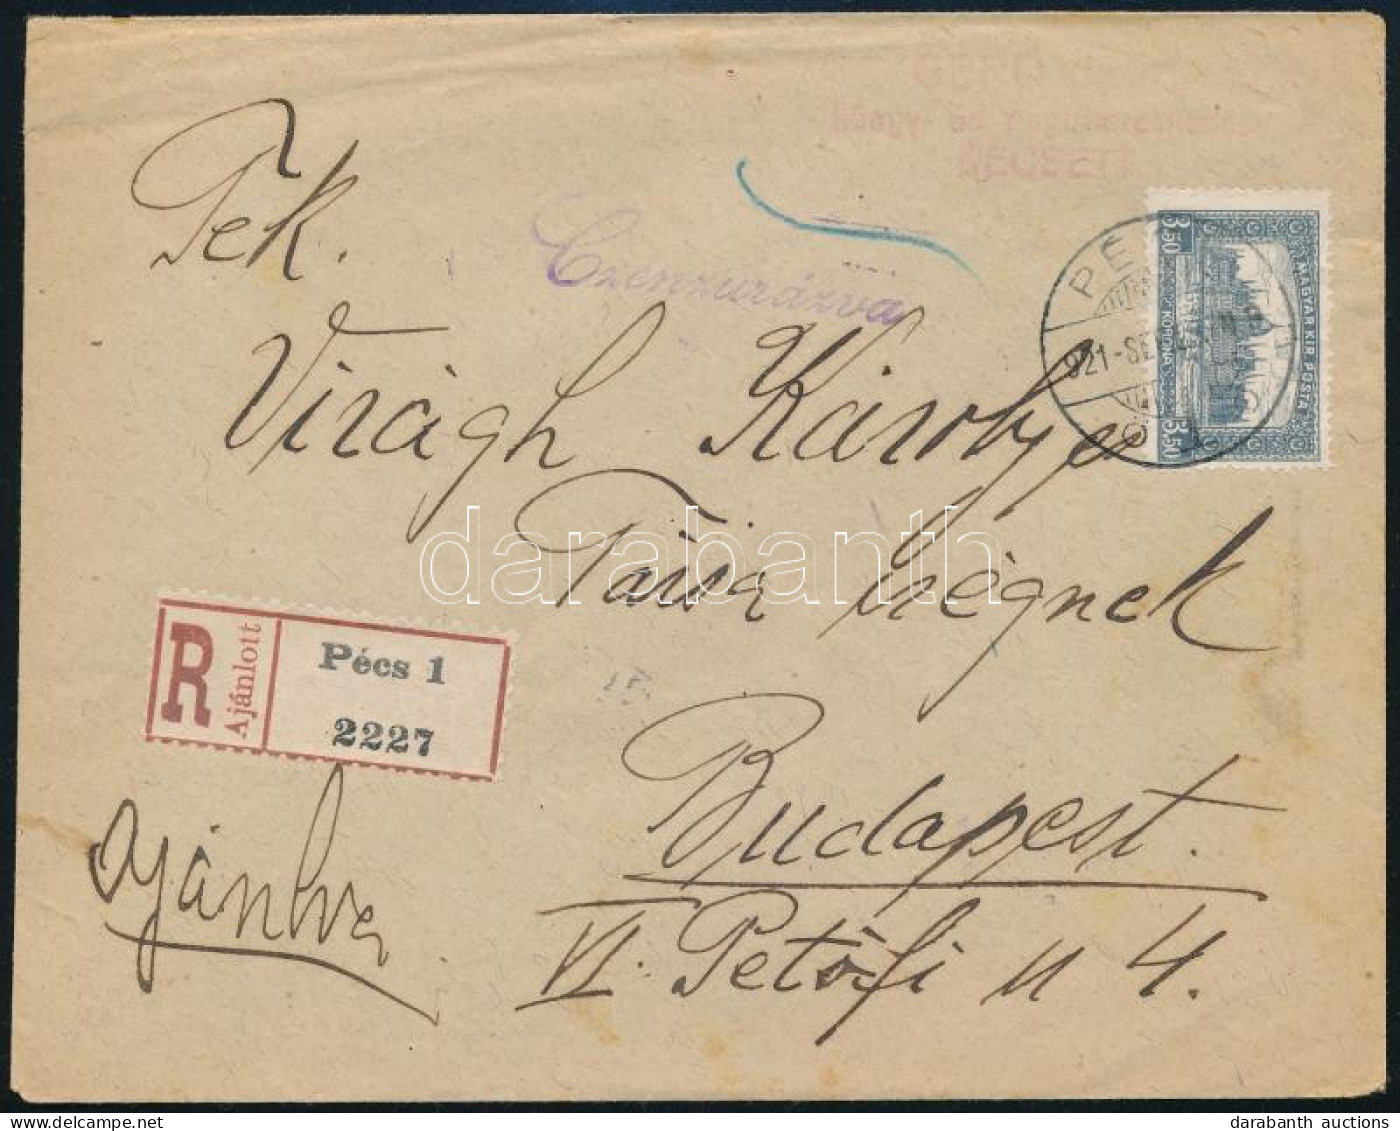 Tek.
Czenzurázva
Virágh Károly
Tanár úrnak
Budapest.
VI. Petőfi u 4.
R
Ajánlott
Pécs 1
2227
ajánlva
3.50
MAGYAR KIR POSTA
KORONA
3.50
PÉ
921-SE
darabanth
darabanth auctions
www.darabanth.com